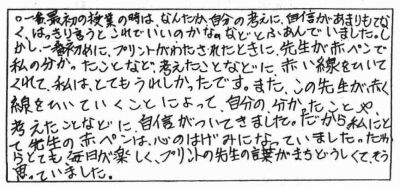 ○一番最初の授業の時は、なんだか、自分の考えに、自信があまりもてな
く、はっきり言うとこれでいいのかな。などとふあんでいました。し
かし、一番初めに、プリントがわたされたときに、先生が赤ペンで
私の分かったことなど、考えたことなどに、赤い線をひいて
くれて、私は、とてもうれしかったです。また、この先生が赤く
線をひいていくことによって、自分の、分かったことや
考えたことなどに、自信がついてきました。だから私にと
って先生の赤ペンは、心のはげみになっていました。だか
らとても毎日が楽しく、プリントの先生の言葉がまちどうしくて、そう
思っていました。